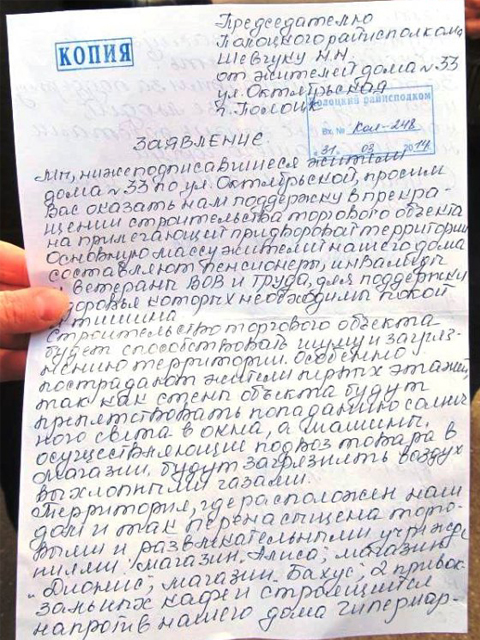 КОПИЯ
Председателю
Полоцкого райисполкома
Шевчуку Н.Н.
от жителей дома №33
ул. Октябрьская
г. Полоцк
Полоцкий райисполком
Вх. № Кол-248
"31" 03 2014
Заявление
Мы, нижеподписавшиеся жители
дома №33 по ул. Октябрьской, просим
Вас оказать нам поддержку в прекра-
щении строительства торгового объекта
на прилегающей придворовой территории
Основную массу жителей нашего дома
составляют пенсионеры, инвалиды
и ветераны ВОВ и труда, для поддержки
здоровья которых необходимы покой
и тишина
Строительство торгового объекта
будет способствовать шуму и загряз-
нению территории. Особенно
пострадают жители первых этажей,
так как стены объекта будут
препятствовать попаданию солнеч
ного света в окна, а машины,
осуществляющие подвоз товара в
магазин, будут загрязнять воздух
выхлопными газами.
Территория, где расположен наш
дом и так перенасыщена торго-
выми и развлекательными учрежде
ниями: магазин "Алиса", магазин
"Дионис", магазин "Бахус", 2 привок
зальных кафе и строящийся
напротив нашего дома гипермар-